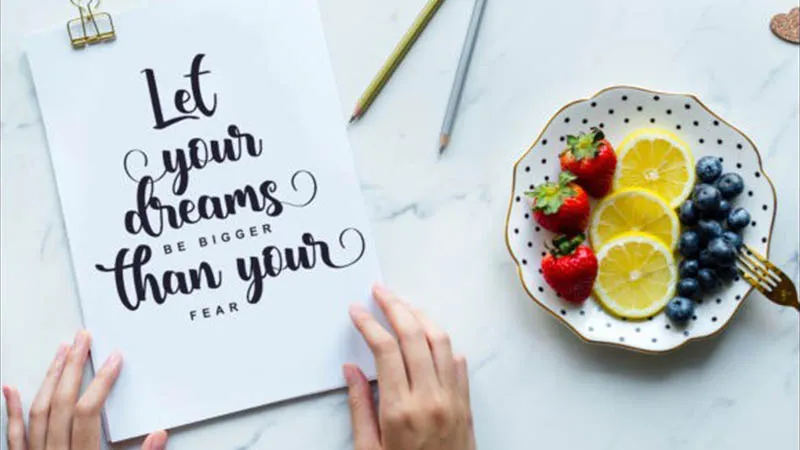 Let
your
dreams
BE BIGGER
than your
FEAR